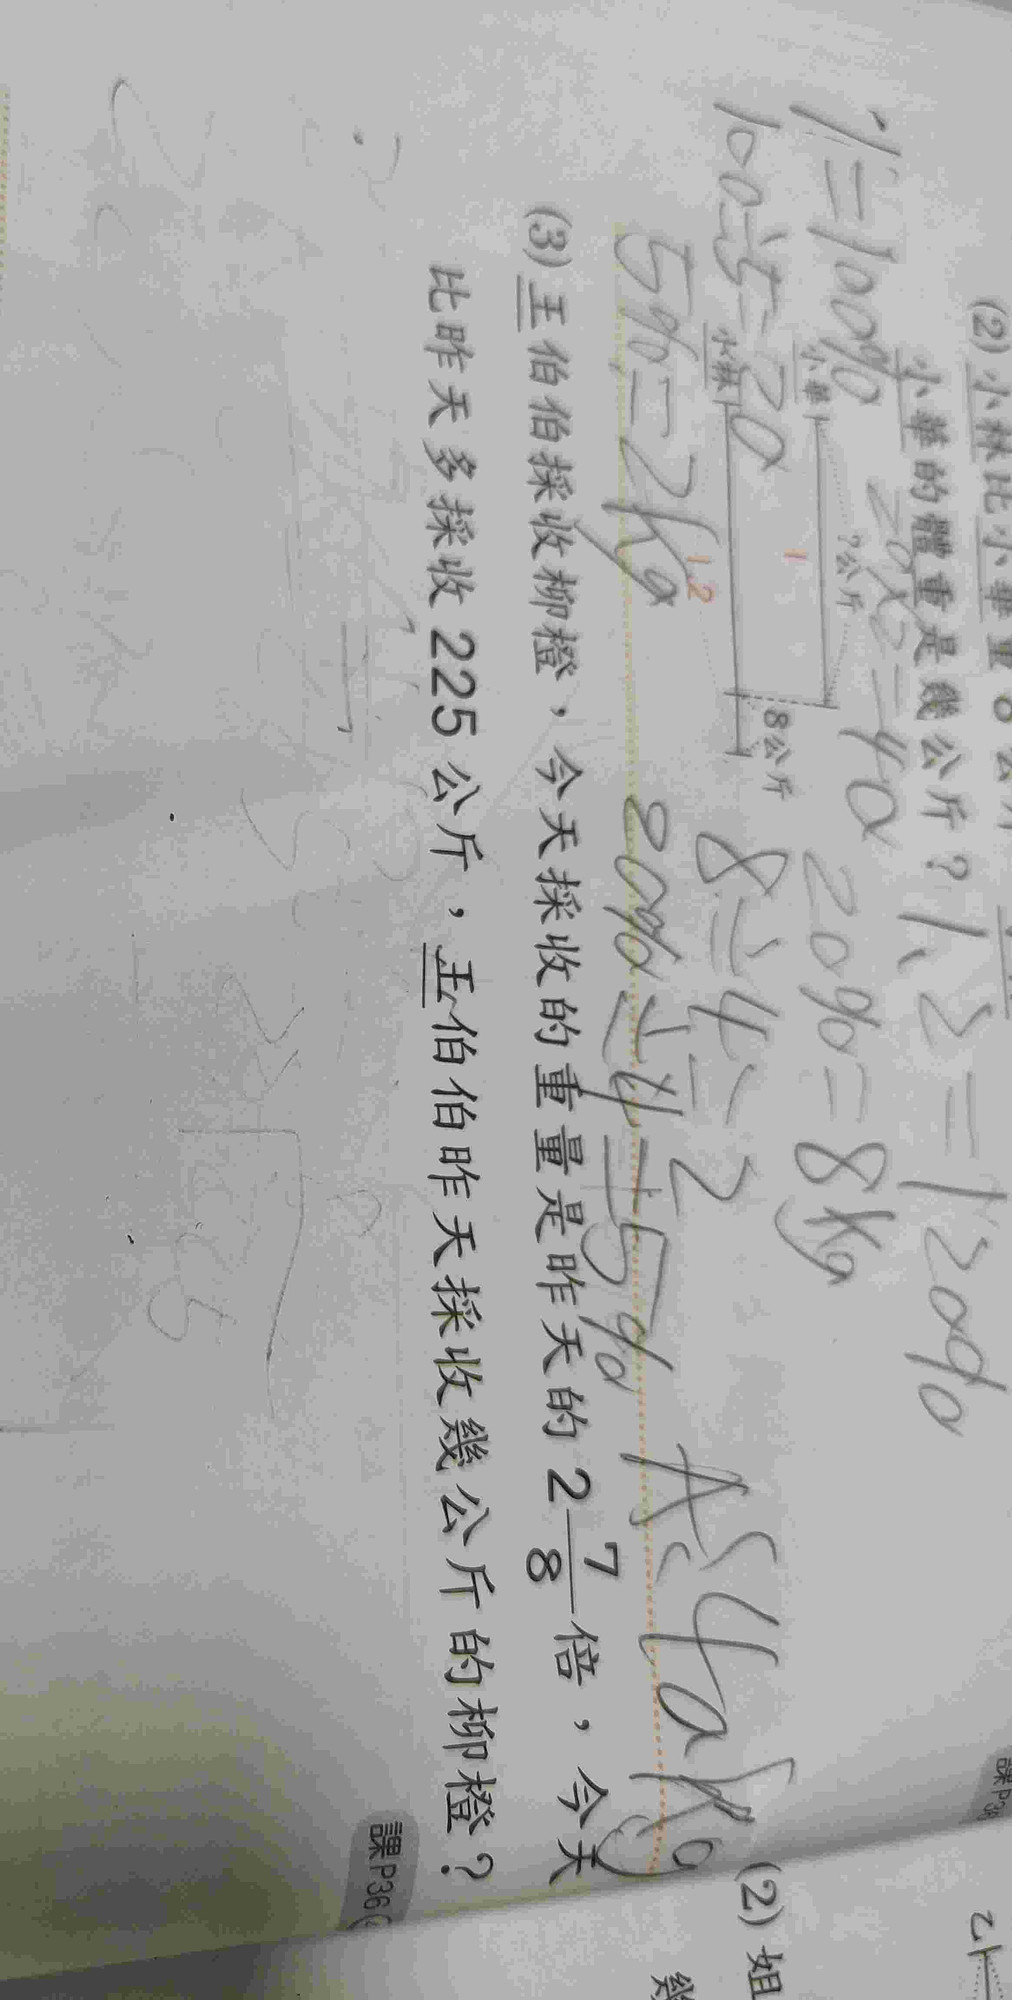 (2) 小林比小華重8公斤
小華的體重是幾公斤？
1.2=120%
20%=8kg
8÷4=2
20%÷4=5%
5%=2kg
100÷5=20
20×2=40
A:40kg
1=100%
?公斤
小華
1
小林
1.2
8公斤
(3) 王伯伯採收柳橙，今天採收的重量是昨天的 2 7/8 倍，今天
比昨天多採收 225 公斤，王伯伯昨天採收幾公斤的柳橙？
課P36
(2) 姐
幾
乙